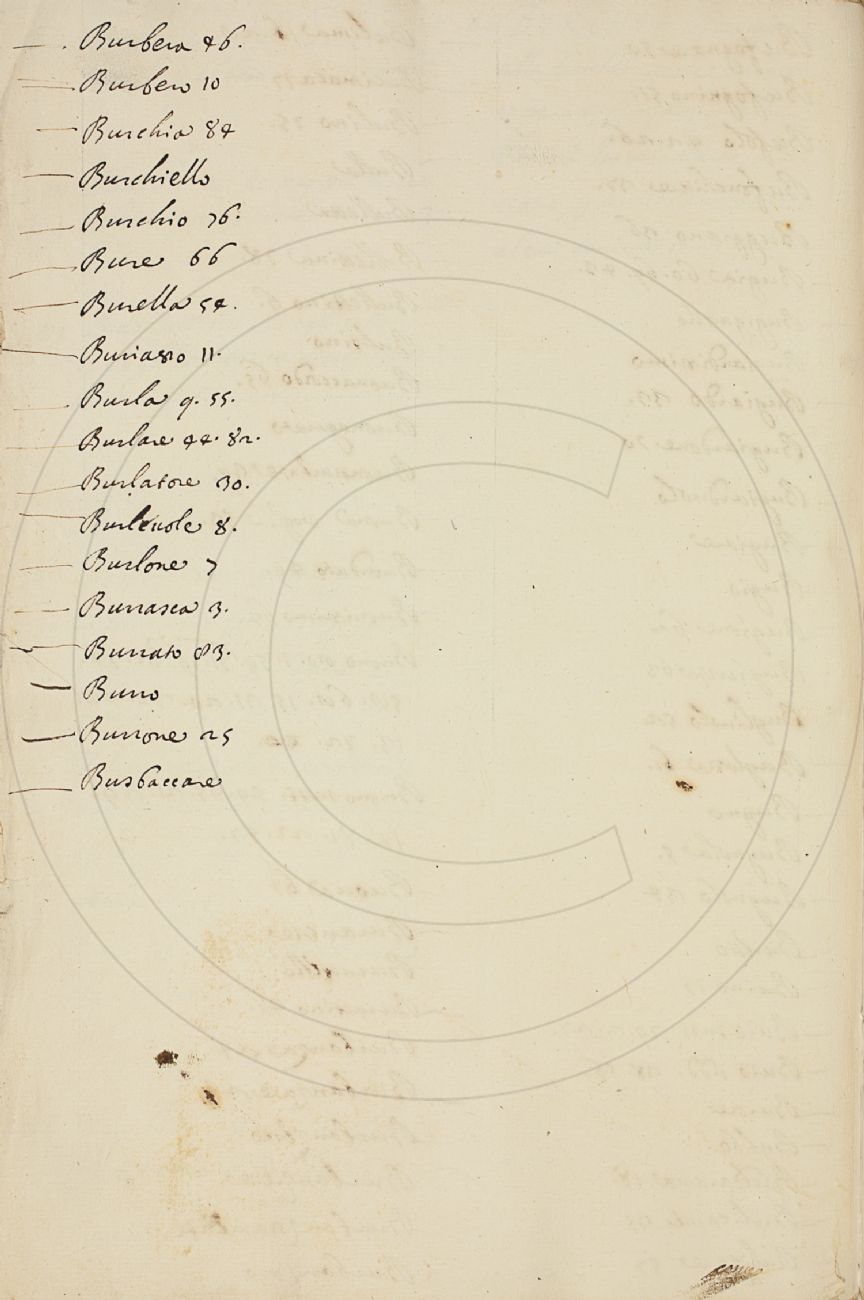 Burbera 46.
Burbero 10
Burchia 84
Burchiello
Burchio 76.
Bure 66
Burella 54.
Buriasso 11.
Burla 9. 55.
Burlare 44. 82.
Burlatore 30.
Burleuole 8.
Burlone 7
Burrasca 3.
Burrato 83.
Burro
Burrone 25
Busbaccare